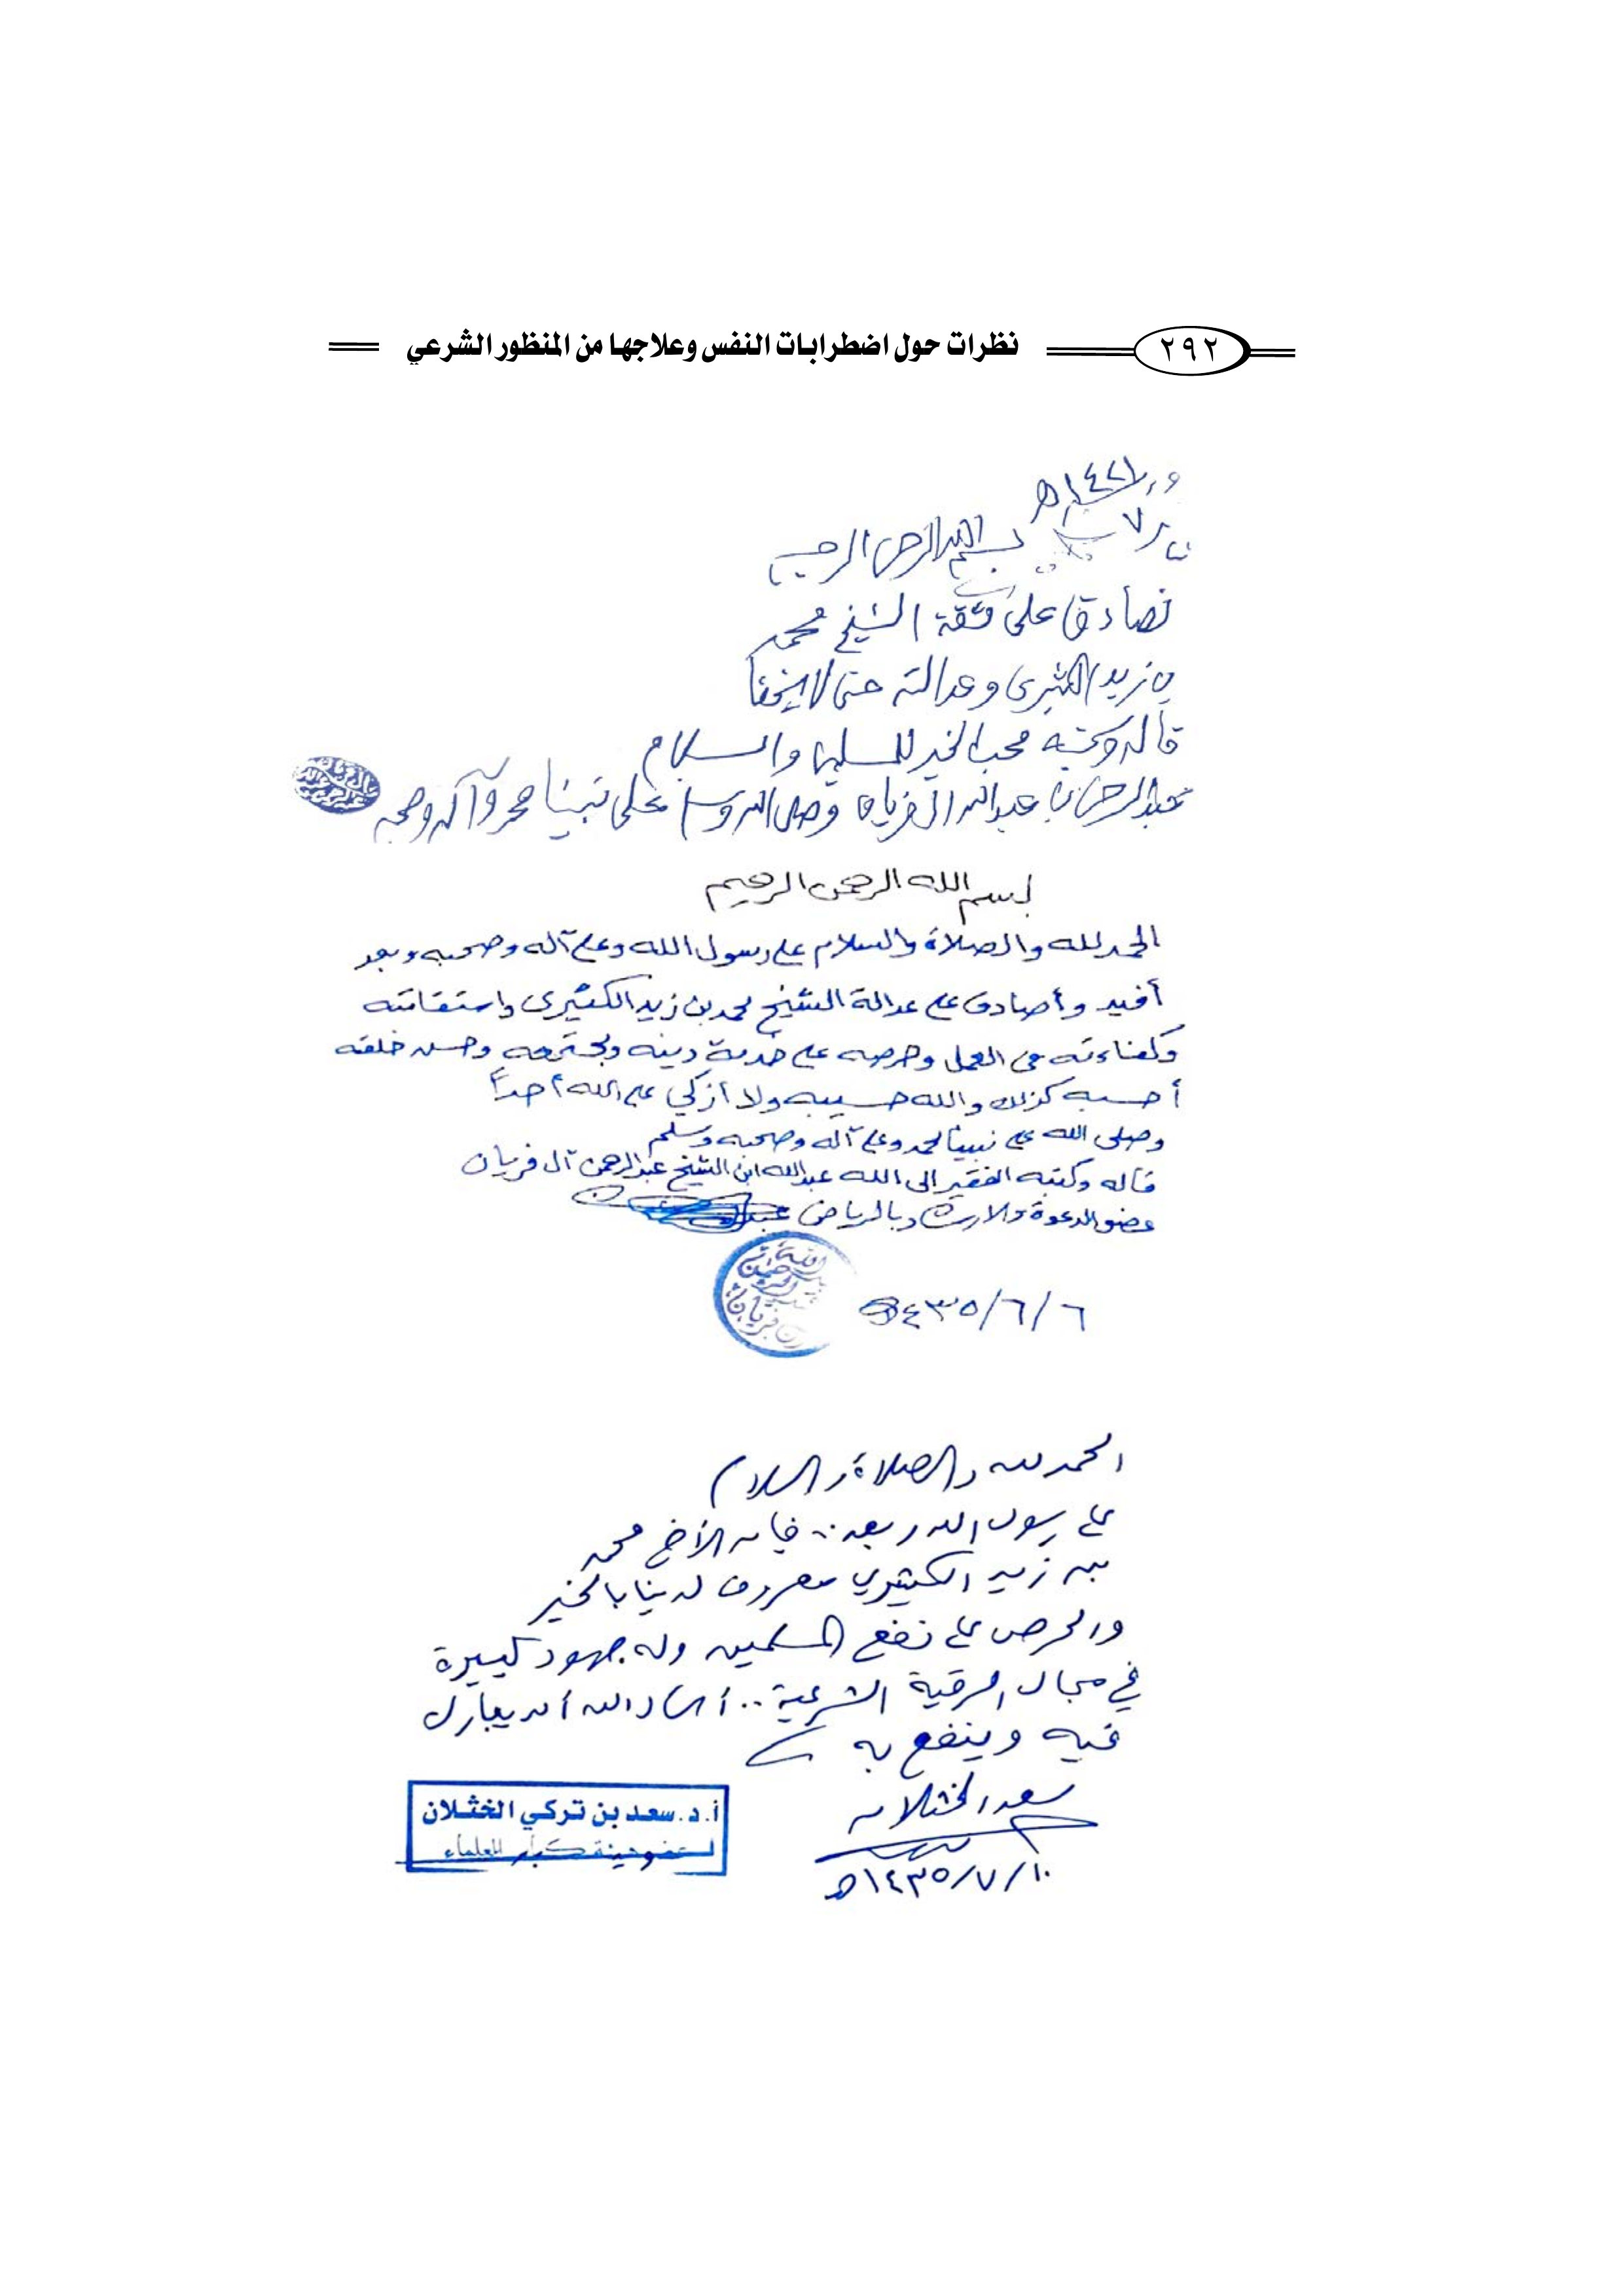 ٢٩٢ نظرات حول اضطرابات النفس وعلاجها من المنظور الشرعي
بسم الله الرحمن الرحيم
نصادق على ثقة الشيخ محمد
بن زيد الكثيري وعدالته حتى لا يخفا
قاله وكتبه محب الخير للمسلمين والسلام
عبدالرحمن بن عبدالله آل فريان وصلى الله وسلم على نبينا محمد وآله وصحبه
بسم الله الرحمن الرحيم
الحمد لله والصلاة والسلام على رسول الله وعلى آله وصحبه وبعد
أفيد وأصادق على عدالة الشيخ محمد بن زيد الكثيرى واستقامته
وكفاءته في العمل وحرصه على خدمة دينه ومجتمعه وحسن خلقه
أحسبه كذلك والله حسيبه ولا أزكي على الله أحداً
وصلى الله على نبينا محمد وعلى آله وصحبه وسلم
قاله وكتبه الفقير إلى الله عبدالله ابن الشيخ عبدالرحمن آل فريان
عضو الدعوة والارشاد بالرياض
٦/٦/١٤٣٥هـ
الحمد لله والصلاة والسلام
على رسول الله وبعد .. فإن الأخ محمد
بن زيد الكثيري معروف لدينا بالخير
والحرص على نفع المسلمين وله جهود كبيرة
في مجال الرقية الشرعية .. أسأل الله أن يبارك
فيه وينفع به
سعد الخثلان
١٠/٧/١٤٣٥هـ
أ.د. سعد بن تركي الخثلان
عضو هيئة كبار العلماء